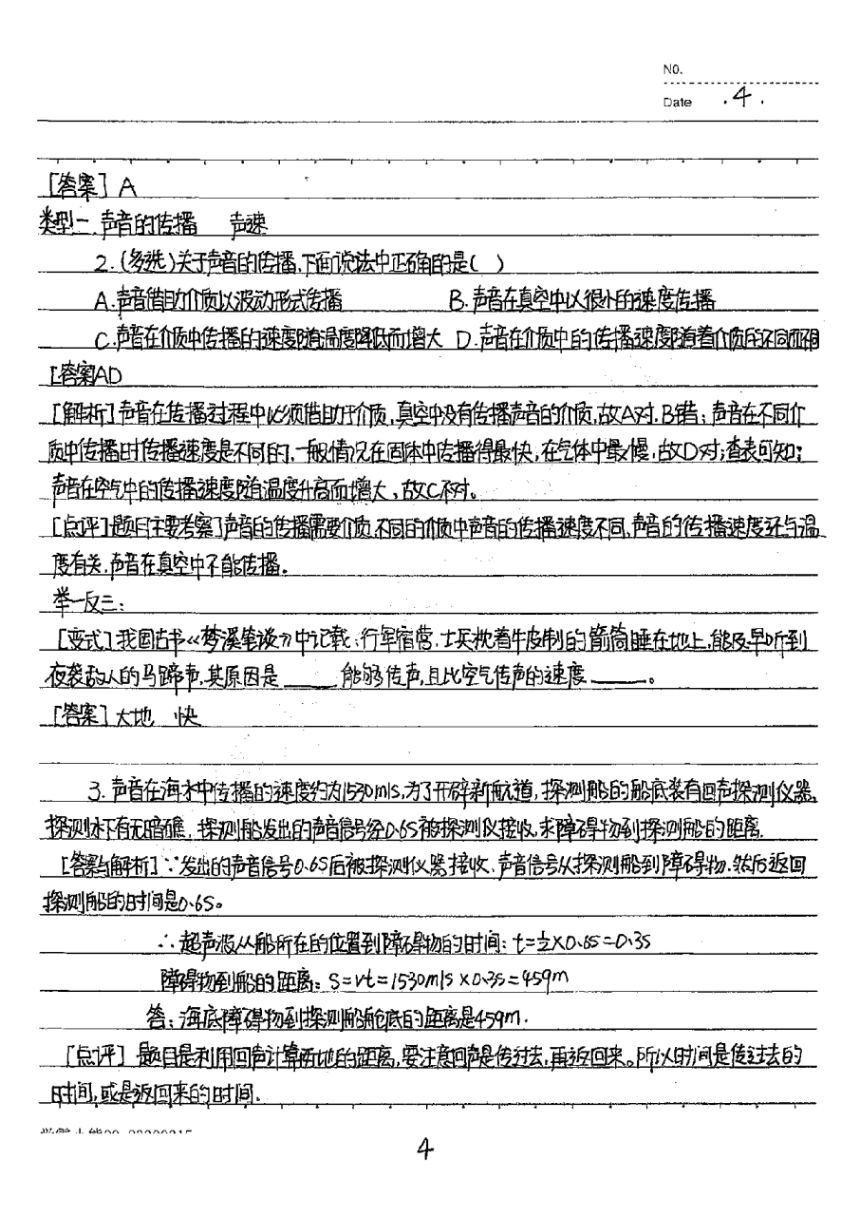 NO.
Date .4.
[答案] A
类型二. 声音的传播 声速
2.(多选)关于声音的传播,下面说法中正确的是( )
A.声音借助介质以波动形式传播 B.声音在真空中以很小的速度传播
C.声音在介质中传播的速度随温度降低而增大 D.声音在介质中的传播速度随着介质的不同而不同
[答案]AD
[解析]声音在传播过程中必须借助于介质,真空中没有传播声音的介质,故A对.B错;声音在不同介
质中传播时传播速度是不同的.一般情况在固体中传播得最快,在气体中最慢,故D对;查表可知:
声音在空气中的传播速度随温度升高而增大,故C不对。
[点评]题目主要考察了声音的传播需要介质.不同的介质中声音的传播速度不同,声音的传播速度还与温
度有关.声音在真空中不能传播。
举一反三:
[变式]我国古书《梦溪笔谈》中记载:行军宿营.士兵枕着牛皮制的箭筒睡在地上,能及早听到
夜袭敌人的马蹄声,其原因是____能够传声,且比空气传声的速度____。
[答案]大地 快
3.声音在海水中传播的速度约为1530m/s,为了开辟新航道,探测船的船底装有回声探测仪器,
探测水下有无暗礁,探测船发出的声音信号经0.6S被探测仪接收,求障碍物到探测船的距离.
[答案与解析]∵发出的声音信号0.6S后被探测仪器接收.声音信号从探测船到障碍物.然后返回
探测船的时间是0.6S。
∴超声波从船所在的位置到障碍物的时间:t=½×0.6S=0.3S
障碍物到船的距离:S=vt=1530m/s×0.3s=459m
答:海底障碍物到探测船舱底的距离是459m.
[点评] 题目是利用回声计算两地的距离,要注意回声是传过去,再返回来。所以时间是传过去的
时间,或是返回来的时间.
4